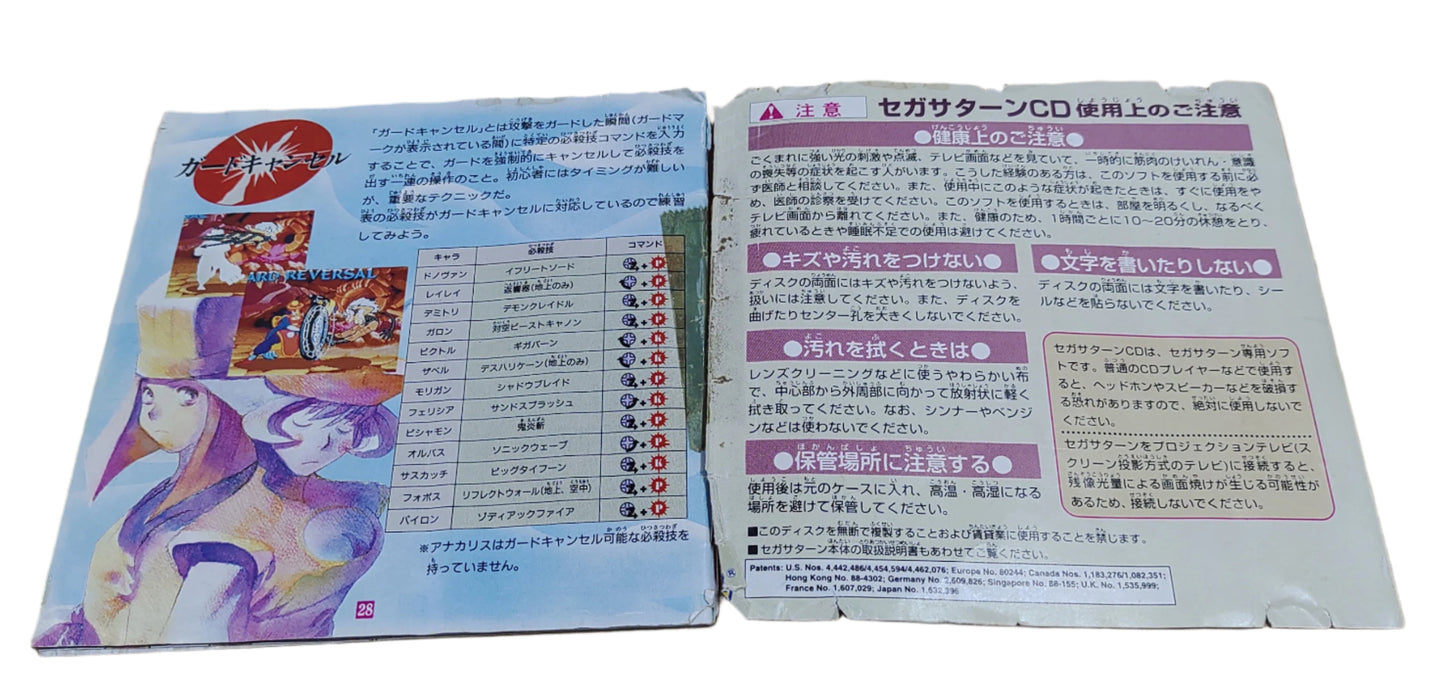 ガードキャンセル
「ガードキャンセル」とは攻撃をガードした瞬間(ガードマ
ークが表示されている間)に特定の必殺技コマンドを入力
することで、ガードを強制的にキャンセルして必殺技を
出す一連の操作のこと。初心者にはタイミングが難しい
が、重要なテクニックだ。
表の必殺技がガードキャンセルに対応しているので練習
してみよう。
ARD REVERSAL
キャラ 必殺技 コマンド
ドノヴァン イフリートソード +P
レイレイ 返響器(地上のみ) +P
デミトリ デモンクレイドル +P
ガロン 対空ビーストキャノン +P
ビクトル ギガバーン +K
ザベル デスハリケーン(地上のみ) +K
モリガン シャドウブレイド +P
フェリシア サンドスプラッシュ +K
ビシャモン 鬼炎斬 +P
オルバス ソニックウェーブ +P
サスカッチ ビッグタイフーン +K
フォボス リフレクトウォール(地上、空中) +P
パイロン ゾディアックファイア +P
※アナカリスはガードキャンセル可能な必殺技を
持っていません。
28
注意 セガサターンCD 使用上のご注意
●健康上のご注意●
ごくまれに強い光の刺激や点滅、テレビ画面などを見ていて、一時的に筋肉のけいれん・意識
の喪失等の症状を起こす人がいます。こうした経験のある方は、このソフトを使用する前に必
ず医師と相談してください。また、使用中にこのような症状が起きたときは、すぐに使用をや
め、医師の診察を受けてください。このソフトを使用するときは、部屋を明るくし、なるべく
テレビ画面から離れてください。また、健康のため、1時間ごとに10〜20分の休憩をとり、
疲れているときや睡眠不足での使用は避けてください。
●キズや汚れをつけない●
ディスクの両面にはキズや汚れをつけないよう、
扱いには注意してください。また、ディスクを
曲げたりセンター孔を大きくしないでください。
●文字を書いたりしない●
ディスクの両面には文字を書いたり、シー
ルなどを貼らないでください。
●汚れを拭くときは●
レンズクリーニングなどに使うやわらかい布
で、中心部から外周部に向かって放射状に軽く
拭き取ってください。なお、シンナーやベンジ
ンなどは使わないでください。
●保管場所に注意する●
使用後は元のケースに入れ、高温・高湿になる
場所を避けて保管してください。
セガサターンCDは、セガサターン専用ソフ
トです。普通のCDプレイヤーなどで使用す
ると、ヘッドホンやスピーカーなどを破損す
る恐れがありますので、絶対に使用しないで
ください。
セガサターンをプロジェクションテレビ(ス
クリーン投影方式のテレビ)に接続すると、
残像光量による画面焼けが生じる可能性が
あるため、接続しないでください。
■このディスクを無断で複製することおよび賃貸業に使用することを禁じます。
■セガサターン本体の取扱説明書もあわせてご覧ください。
Patents: U.S. Nos. 4,442,486/4,454,594/4,462,076; Europe No. 80244; Canada Nos. 1,183,276/1,082,351;
Hong Kong No. 88-4302; Germany No. 2,609,826; Singapore No. 88-155; U.K. No. 1,535,999;
France No. 1,607,029; Japan No. 1,632,396